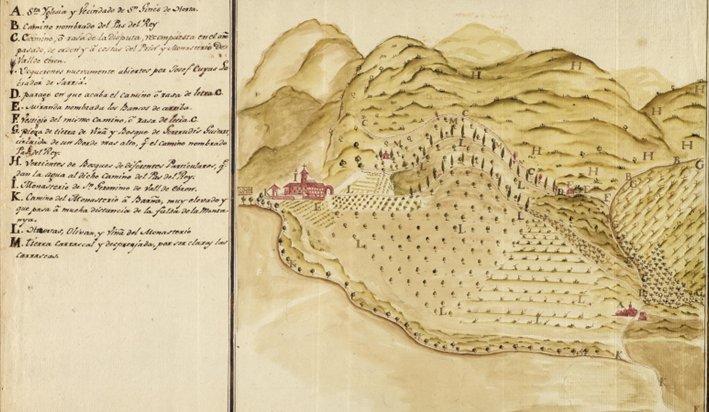 A. Sta Yglesia y Vecindado de Sn Ginis de Horta.
B. Camino nombrado del Pas del Rey
C. Camino, ô rasa de la disputa, recompuesta en el añ
pasado, de orden y â costas del Prior y Monasterio de
Vall de ebron.
nuevamente abiertos por Josef Cuyas La
brador de Sarriâ.
D. parage en que acaba el camino ô rasa de letra C.
E. Miranda nombrada los Bancos de arriba.
F. Vestigio del mismo camino, ô rasa de letra C.
G. pieza de tierra de Viñâ y Bosque de
de un Borde mas alto, q̃ el camino nombrado
Pas del Rey.
H. Vertientes de Bosques de diferentes Particulares, q̃
dan la agua al dicho Camino del Pas del Rey.
I. Monasterio de Sn Geronimo de Vall de ebron.
K. Camino del Monasterio â Barña, muy elevado y
que pasa â mucha distancia de la falda de la Monta
nya.
L. Olivar, y Viña del Monasterio
M. tierra Carrascal y despojada, por ser claras las
carrascas.
H
H
H
H
H
H
H
C
M
M
L
L
L
L
L
L
L
F
G
G
B
B
A
K
K
K